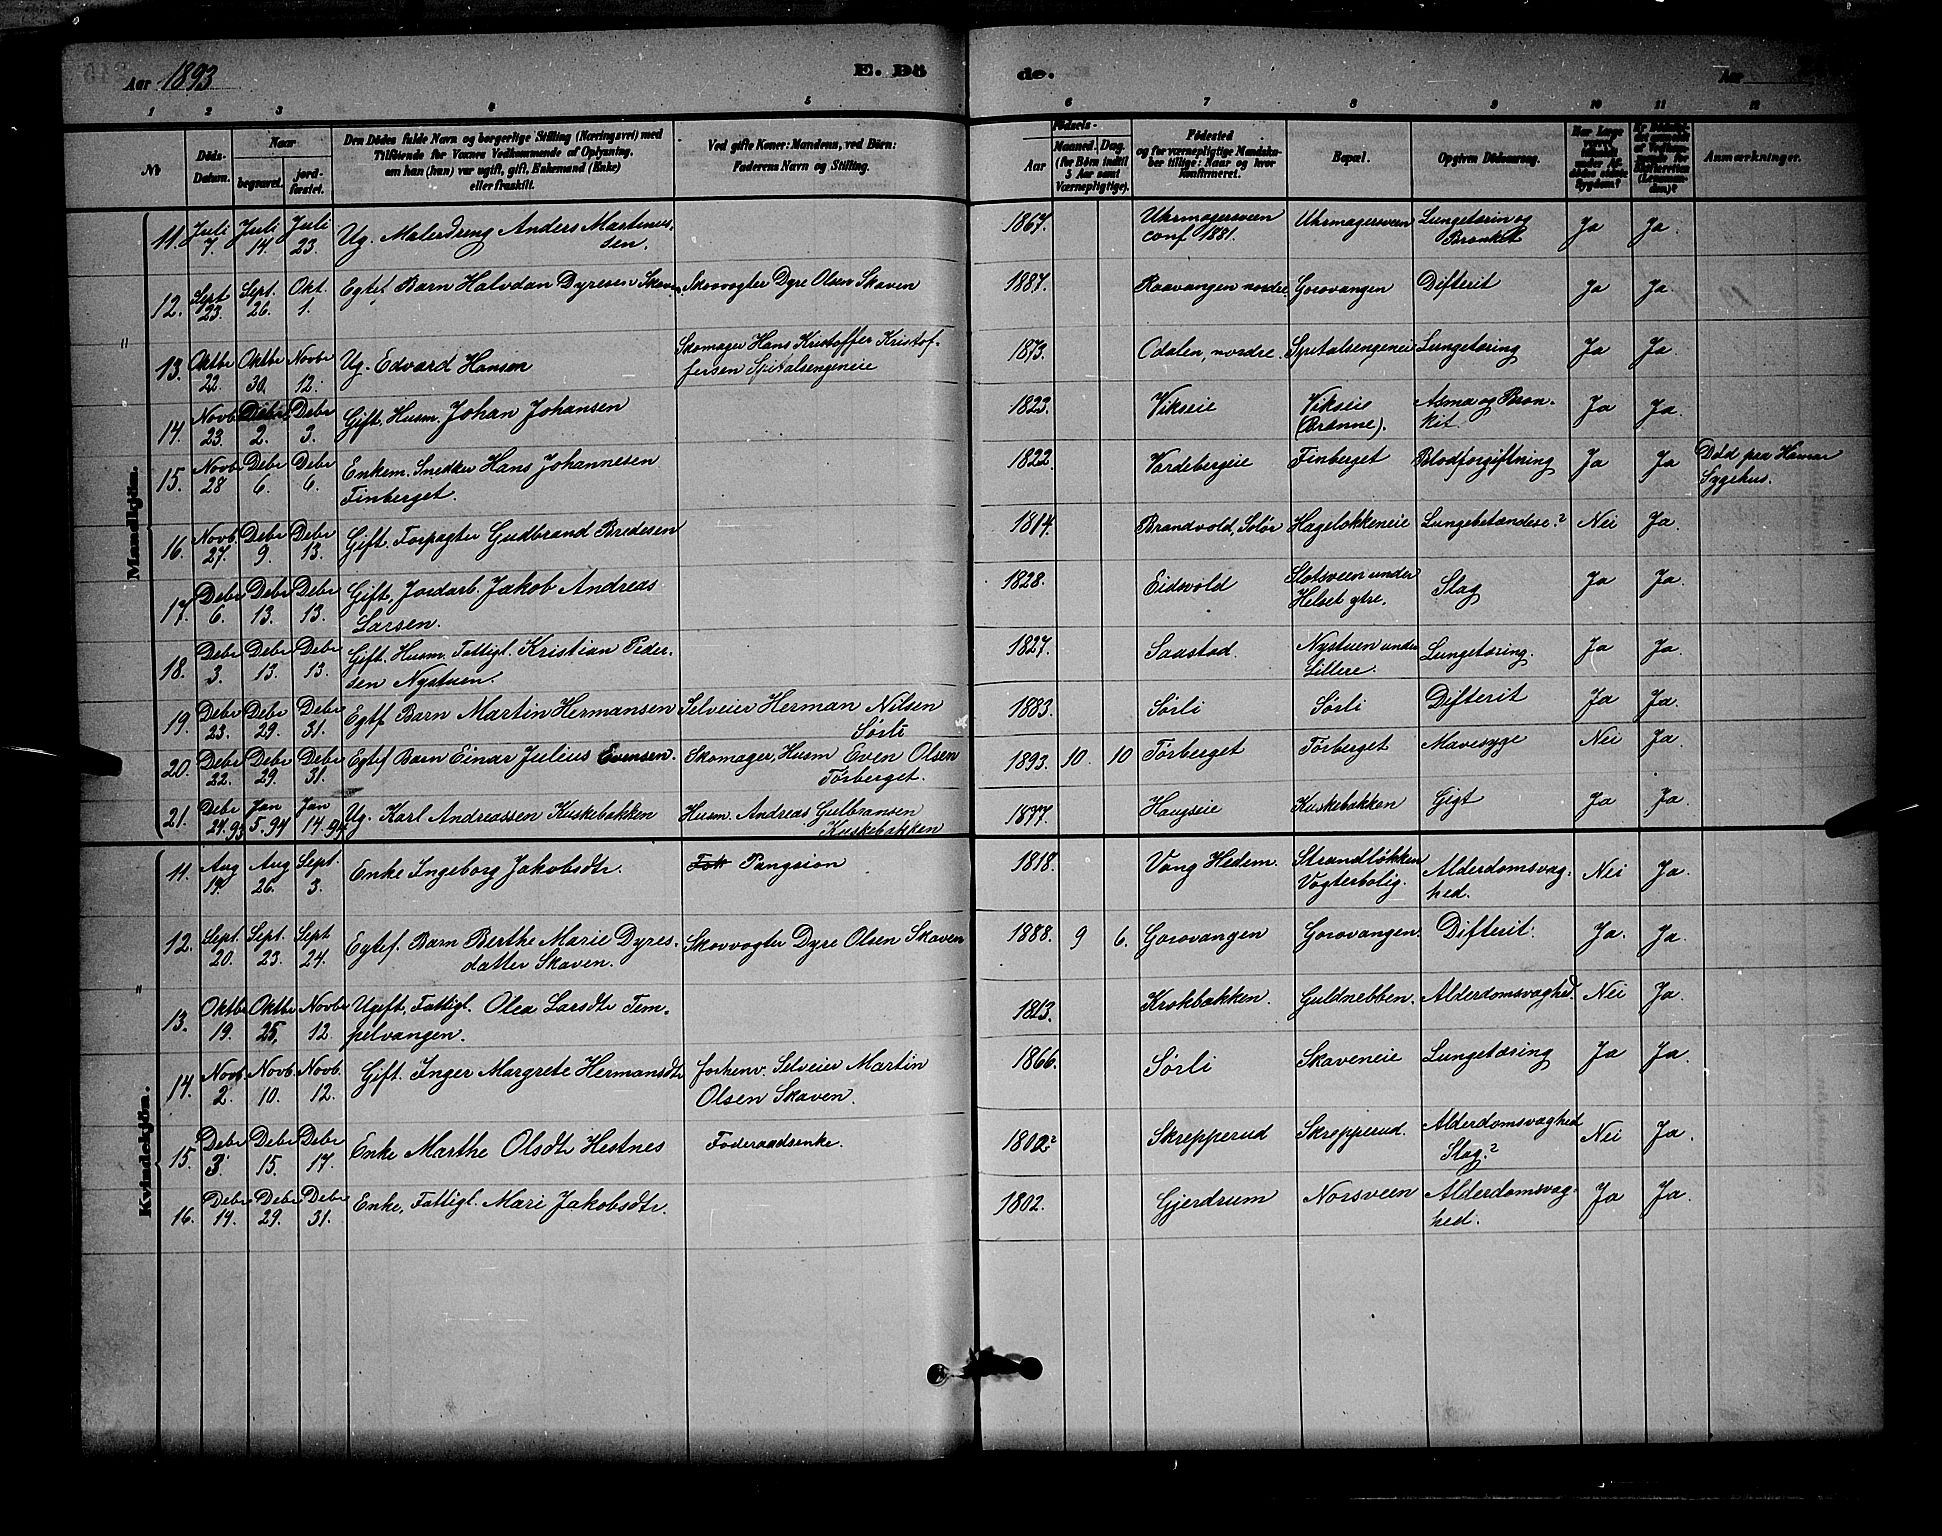 Aar 1893
E. Dö
de.
Aar
1 2 3 4 5 6 7 8 9 10 11 12
No
Döds-Datum.
Naar
begravet.
jord-fæstet.
Den Dödes fulde Navn og borgerlige Stilling (Næringsvei) med
Tilföiende for Voxnes Vedkommende af Oplysning,
om han (hun) var ugift, gift, Enkemand (Enke)
eller fraskilt.
Ved gifte Koner: Mandens, ved Börn:
Faderens Navn og Stilling.
Födsels-
Aar
Maaned. Dag.
(for Börn indtil
5 Aar samt
Værnepligtige).
Födested
og for værnepligtige Mandskaber tillige: Naar og hvor konfirmeret.
Bopæl.
Opgiven Dödsaarsag.
Anmærkninger.
Mandkjön.
11. Juli 7. Juli 14. Juli 23. Ug. Malerdreng Anders Martinussen. 1867. Uhrmagersveen conf 1881. Uhrmagersveen Lungetærin og Bronkit Ja Ja.
12. Sept 23. Sept. 26. Okt. 1. Egtef. Barn Halvdan Dyresen Skaven. Skovvogter Dyre Olsen Skaven 1887. Raavangen nordre. Gorovangen Difterit Ja Ja.
13. Oktbr 22. Oktbr 30. Novbr 12. Ug. Edvard Hansen Skomager Hans Kristoffer Kristoffersen Spitalsengeneie 1873. Odalen, nordre. Spitalsengeneie Lungetæring Ja Ja.
14. Novb 23. Debr 2. Debr 3. Gift. Husm. Johan Johansen 1823. Vikseie Vikseie (Brænne). Asma og Bronkit. Ja Ja.
15. Novb 28 Debr 6. Debr 6. Enkem. Snedker Hans Johannesen Finberget. 1822. Vardebergeie Finberget Blodforgiftning Ja Ja Død paa Hamar Sygehus.
16. Novb. 27. Debr 9. Debr 13. Gift. Forpagter Gudbrand Bredesen 1814. Brandvold, Solør Hageløkkeneie Lungebetændese? Nei Ja.
17. Debr 6. Debr 13. Debr 13. Gift, Jordarb. Jakob Andreas Larsen. 1828. Eidsvold Slotsveen under Helset ytre. Slag Ja Ja.
18. Debr 3. Debr 13. Debr 13. Gift. Husm. Fattigl. Kristian Pedersen Nystuen. 1827. Saastad. Nystuen under Lillere. Lungetæring. Ja Ja.
19. Debr 23. Debr 29. Debr 31. Egtf Barn Martin Hermansen Selveier Herman Nilsen Sørli 1883. Sørli Sørli Difterit Ja Ja.
20. Debr 22. Debr 29. Debr 31. Egtef Barn Einar Julius Evensen. Skomager, Husm Even Olsen Tørberget. 1893. 10. 10 Tørberget Tørberget Mavesyge Nei Ja.
21. Debr 24.93 Jan 5.94 Jan 14.94 Ug. Karl Andreassen Kuskebakken Husm. Andreas Gulbransen Kuskebakken 1877. Haugseie Kuskebakken Gigt Ja Ja.
Kvindekjön.
11. Aug 19. Aug 26. Sept. 3. Enke Ingeborg Jakobsdtr. Pangsion 1818. Vang Hedem. Strandløkken Vogterbolig. Alderdomsvaghed. Nei Ja.
12. Sept. 20. Sept. 23. Sept 24. Egtef. Barn Berthe Marie Dyresdatter Skaven. Skovvogter Dyre Olsen Skaven 1888. 9 6. Gorovangen Gorovangen. Difterit. Ja. Ja.
13. Oktbr 19. Oktbr 25. Novbr 12. Ugift, Fattigl. Olea Larsdtr Tempelvangen. 1813. Krokbakken. Guldnebben. Alderdomsvaghed. Nei Ja.
14. Novb 2. Novb. 10. Novb. 12. Gift. Inger Margrete Hermansdtr forhenv. Selveier Martin Olsen Skaven. 1866. Sørli Skaveneie Lungetæring Ja Ja.
15. Debr 3. Debr 15. Debr 17. Enke Marthe Olsdtr Hestnes Foderaadsenke. 1802? Skrepperud Skrepperud. Alderdomsvaghed Slag? Nei Ja.
16. Debr 19. Debr 29. Debr 31. Enke, Fattigl. Mari Jakobsdtr. 1802. Gjerdrum Norsveen Alderdomsvaghed. Ja Ja.